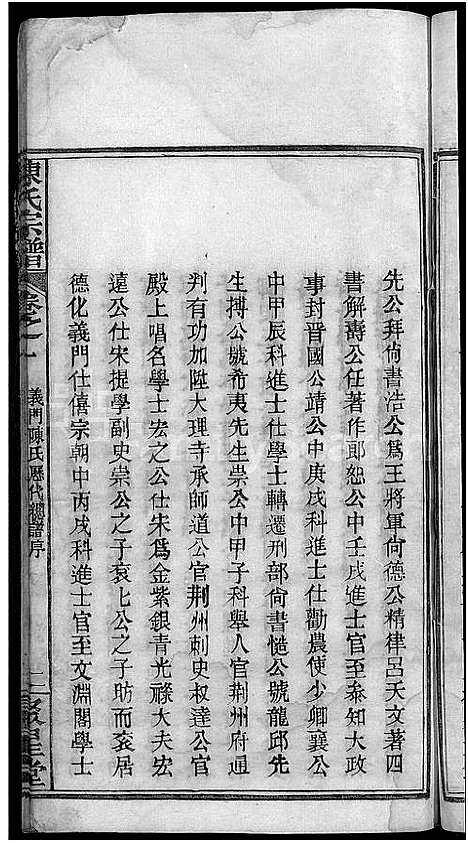 先公拜尙書浩公爲王將軍尙德公精律呂天文著四
書解壽公任著作郎恕公中壬戌進士官至泰知大政
事封晋國公靖公中庚戌科進士仕勸農使少卿襄公
中甲辰科進士仕學士轉遷刑部尙書慥公號龍邱先
生摶公號希夷先生崇公中甲子科舉人官荆州府通
判有功加陞大理寺承師道公官荆州刺史权達公官
殿上唱名學士宏之公仕朱爲金紫銀青光祿大夫宏
遠公仕宋提學副史崇公之子袞匕公之子昉而袞居
德化義門仕僖宗朝中丙戌科進士官至文淵閣學士
陳氏宗譜
卷之一
義門陳氏歷代總譜序
二
聚星堂